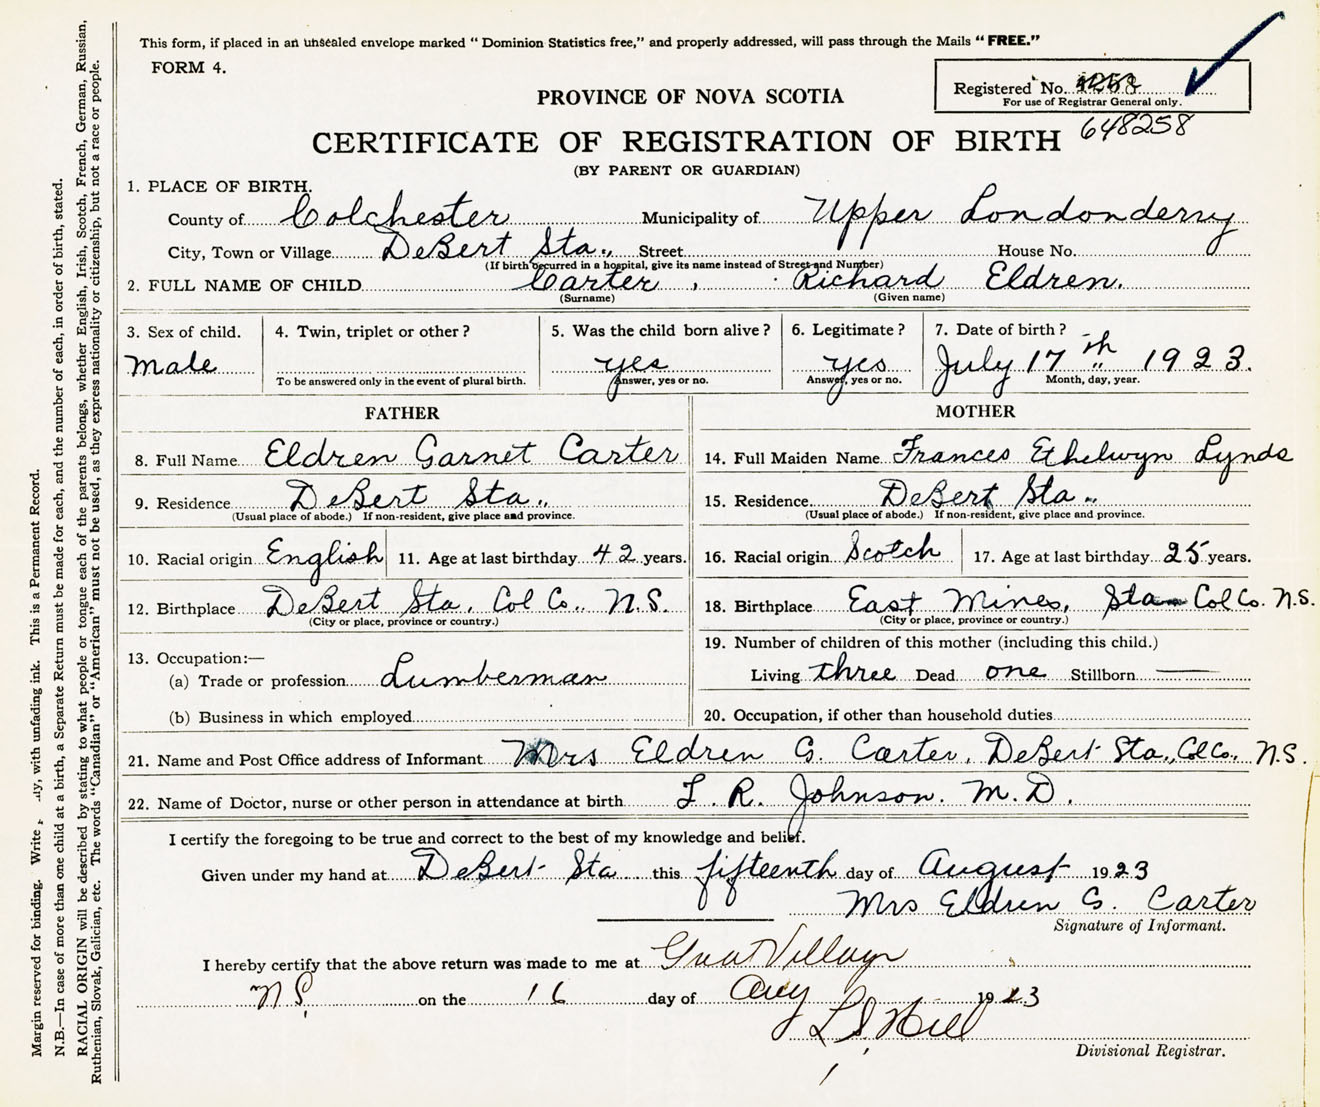 This form, if placed in an unsealed envelope marked “ Dominion Statistics free,” and properly addressed, will pass through the Mails “FREE.”
FORM 4.
Registered No.
For use of Registrar General only.
648258
PROVINCE OF NOVA SCOTIA
CERTIFICATE OF REGISTRATION OF BIRTH
(BY PARENT OR GUARDIAN)
1. PLACE OF BIRTH.
County of Colchester Municipality of Upper Londonderry
City, Town or Village DeBert Sta., Street House No.
(If birth occurred in a hospital, give its name instead of Street and Number)
2. FULL NAME OF CHILD Carter, Richard Eldren.
(Surname) (Given name)
3. Sex of child. 4. Twin, triplet or other? 5. Was the child born alive? 6. Legitimate? 7. Date of birth?
Male yes yes July 17th 1923.
To be answered only in the event of plural birth. Answer, yes or no. Answer, yes or no. Month, day, year.
FATHER MOTHER
8. Full Name Eldren Garnet Carter 14. Full Maiden Name Frances Ethelwyn Lynds
9. Residence DeBert Sta., 15. Residence DeBert Sta.,
(Usual place of abode.) If non-resident, give place and province. (Usual place of abode.) If non-resident, give place and province.
10. Racial origin English 11. Age at last birthday 42 years. 16. Racial origin Scotch 17. Age at last birthday 25 years.
12. Birthplace DeBert Sta., Col Co., N.S. 18. Birthplace East Mines, Sta Col Co. N.S.
(City or place, province or country.) (City or place, province or country.)
13. Occupation:— 19. Number of children of this mother (including this child.)
(a) Trade or profession Lumberman Living three Dead one Stillborn —
(b) Business in which employed 20. Occupation, if other than household duties
21. Name and Post Office address of Informant Mrs Eldren G. Carter, DeBert Sta., Col Co., N.S.
22. Name of Doctor, nurse or other person in attendance at birth T. R. Johnson. M.D.
I certify the foregoing to be true and correct to the best of my knowledge and belief.
Given under my hand at DeBert Sta this fifteenth day of August 1923
Mrs Eldren G. Carter
Signature of Informant.
I hereby certify that the above return was made to me at Great Village
N S. on the 16 day of Aug 1923
Hill
Divisional Registrar.
Margin reserved for binding. Write with unfading ink. This is a Permanent Record.
N.B.—In case of more than one child at a birth, a Separate Return must be made for each, and the number of each, in order of birth, stated.
RACIAL ORIGIN will be described by stating to what people or tongue each of the parents belongs, whether English, Irish, Scotch, French, German, Russian,
Ruthenian, Slovak, Galician, etc. The words “Canadian” or “American” must not be used, as they express nationality or citizenship, but not a race or people.